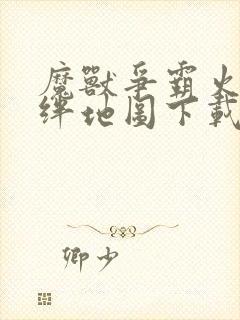 魔獸爭霸火
絆地圖下載
卿少